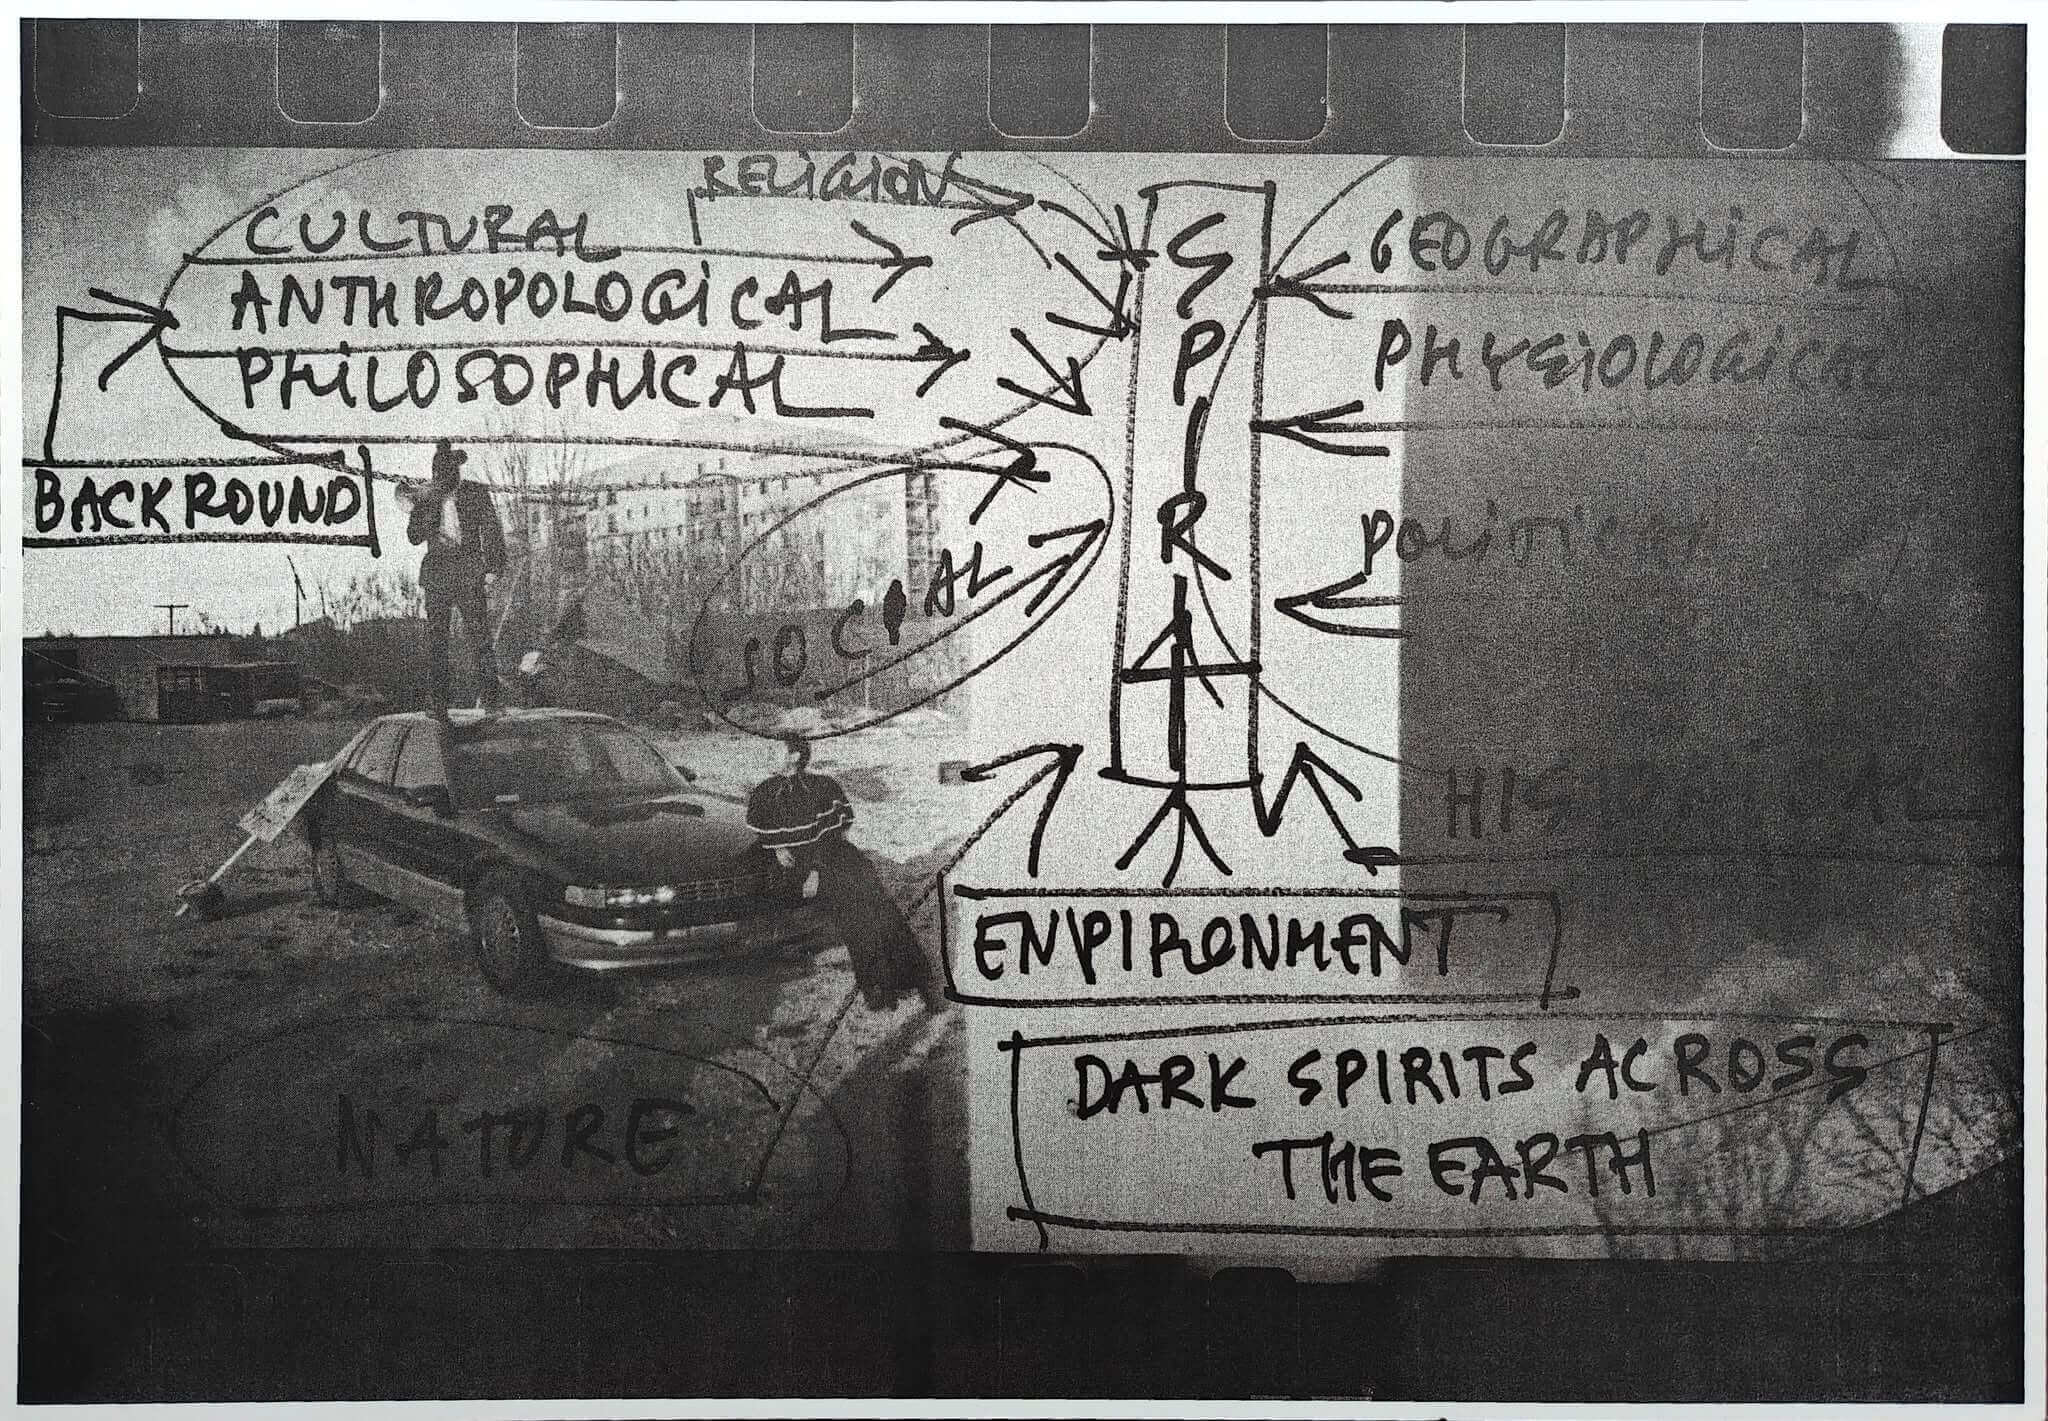 RELIGION
CULTURAL
ANTHROPOLOGICAL
PHILOSOPHICAL
BACKROUND
SOCIAL
SPIRIT
GEOGRAPHICAL
PHYSIOLOGICAL
POLITICAL
HISTORICAL
ENVIRONMENT
NATURE
DARK SPIRITS ACROSS
THE EARTH